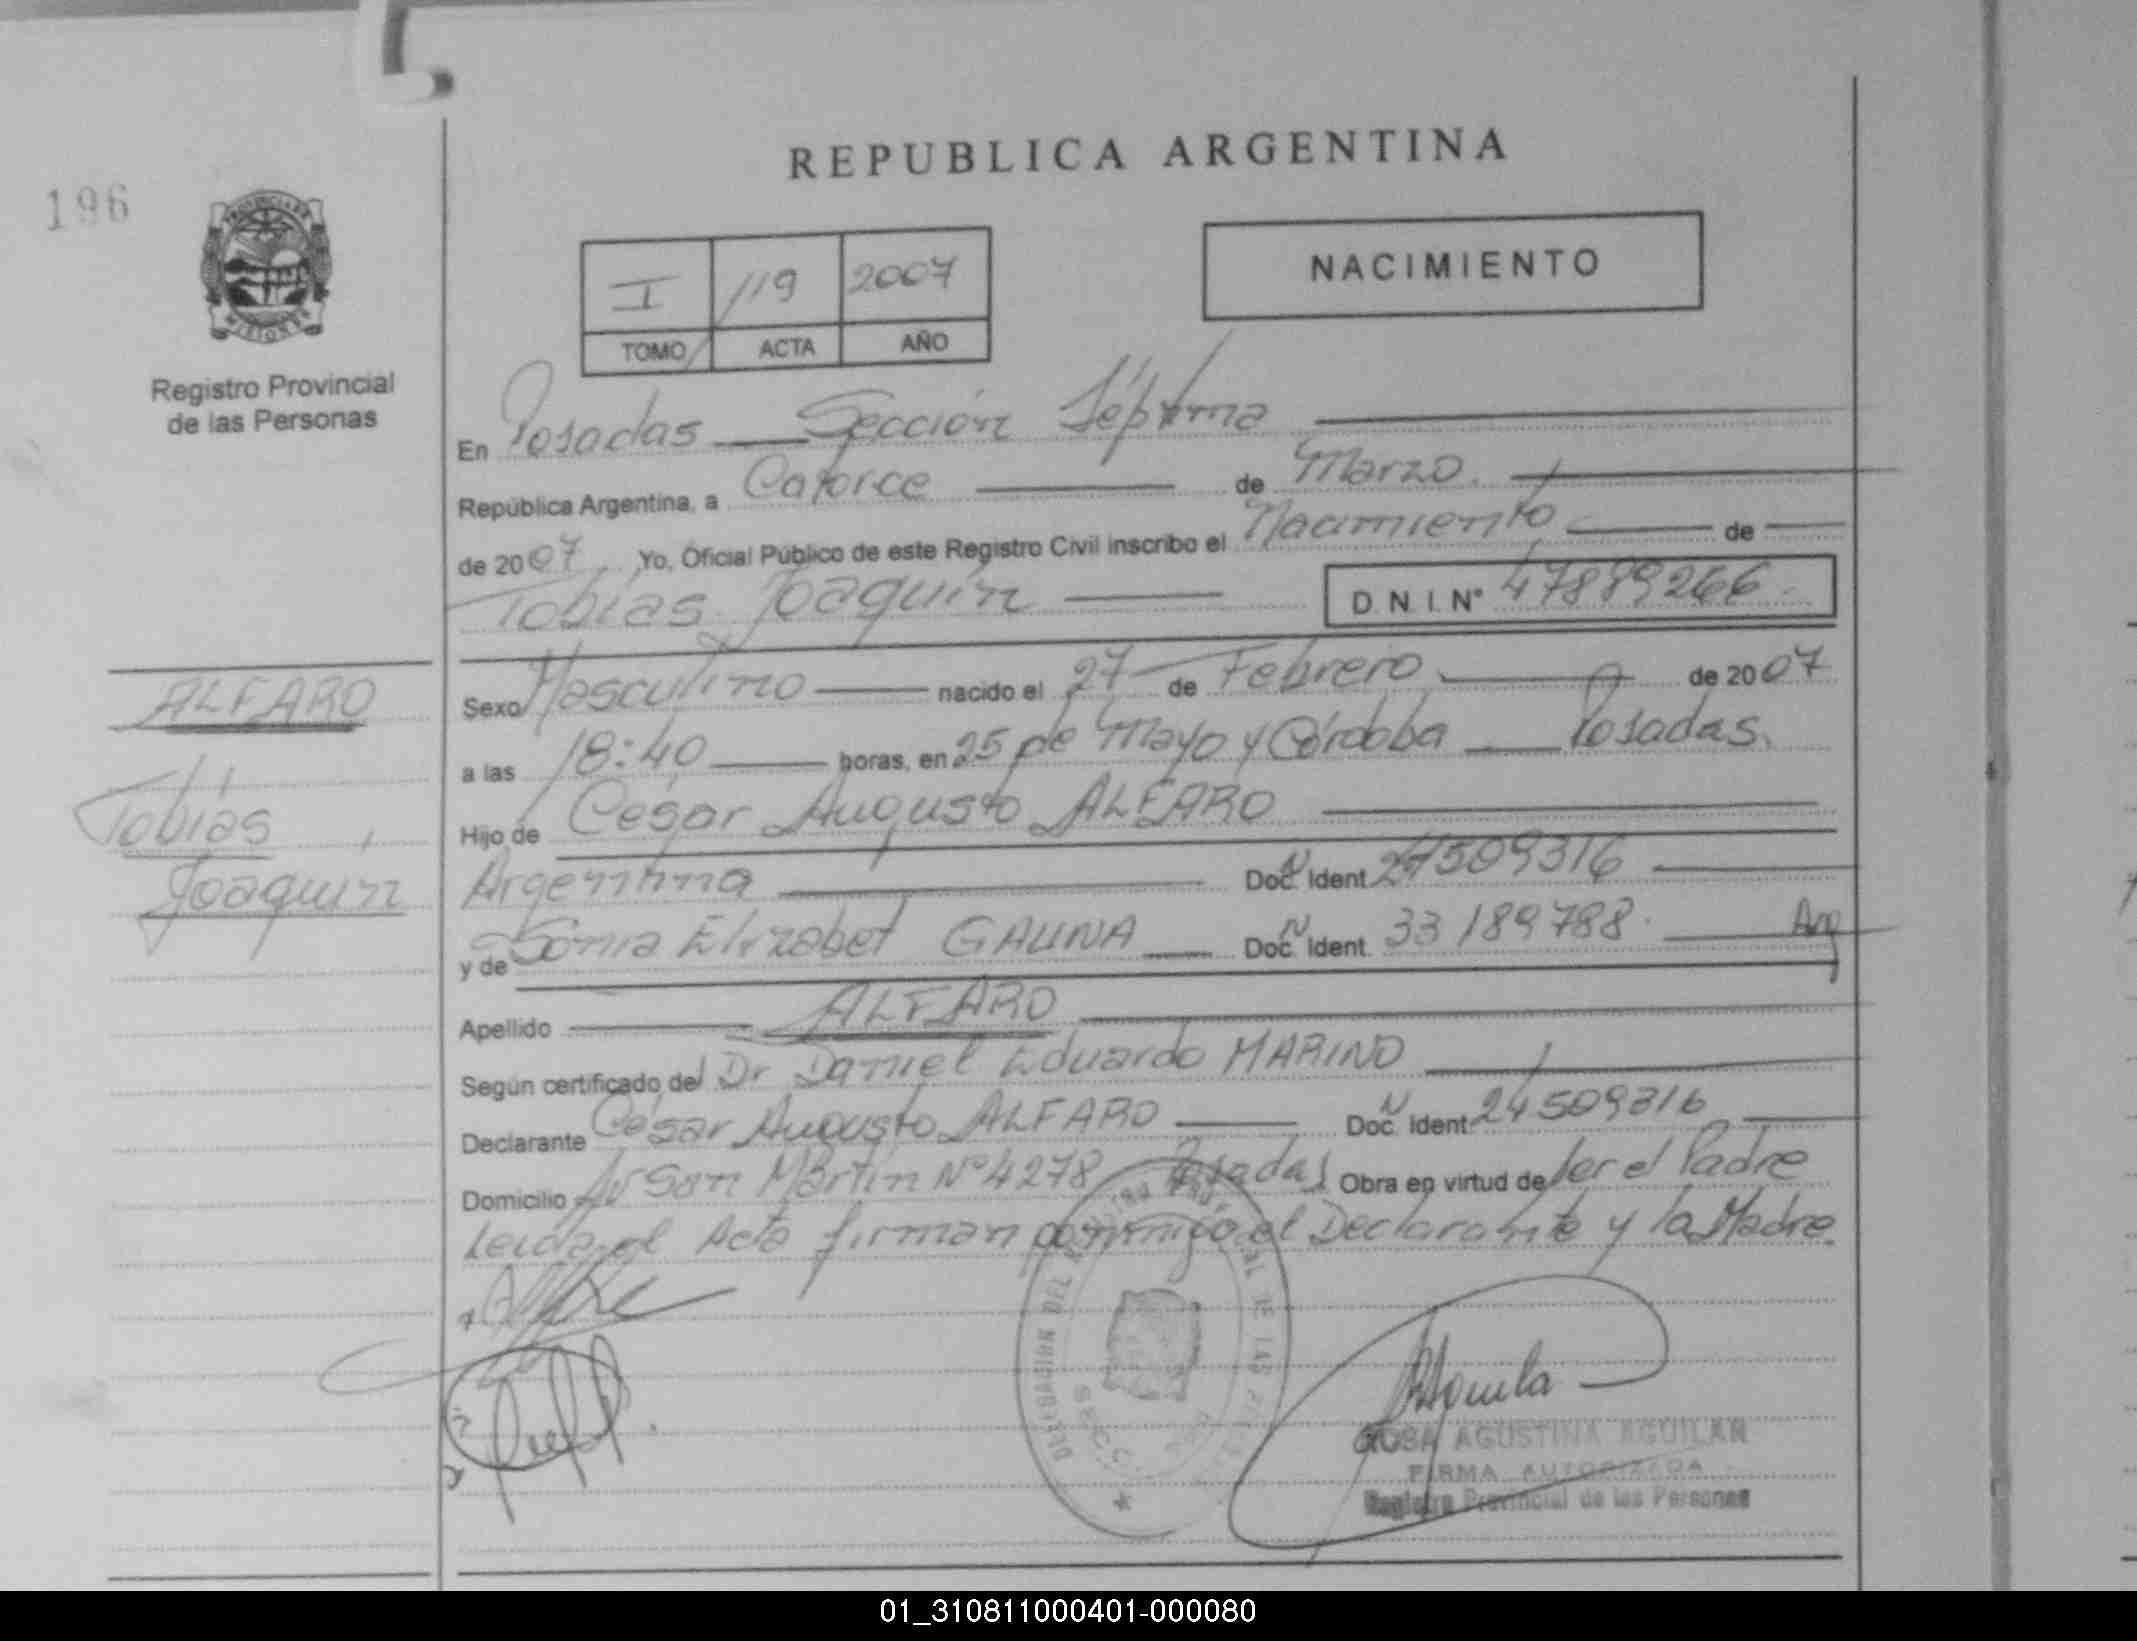 REPUBLICA ARGENTINA
196
PROVINCIA DE
MISIONES
Registro Provincial
de las Personas
I 119 2007
TOMO ACTA AÑO
NACIMIENTO
En Posadas Sección Séptima
República Argentina, a Catorce de Marzo.
de 2007. Yo, Oficial Público de este Registro Civil inscribo el Nacimiento de
Tobias Joaquin D N I Nº 47889266.
Sexo Masculino nacido el 27 de Febrero de 2007
a las 18:40 horas, en 25 de Mayo y Córdoba Posadas.
Hijo de César Augusto ALFARO
Argentina Doc N Ident 24509316
y de Sonia Elizabet GAUNA Doc N Ident. 33189788. Arg
Apellido ALFARO
Según certificado del Dr Daniel Eduardo MARINO
Declarante César Augusto ALFARO Doc N Ident 24509316
Domicilio Av San Martin Nº 4278 Posadas Obra en virtud de ser el Padre
Leida el Acta firman conmigo el Declarante y la Madre.
ALFARO
Tobias
Joaquin
ROSA AGUSTINA AGUILAR
FIRMA AUTORIZADA
Registro Provincial de las Personas
01_310811000401-000080